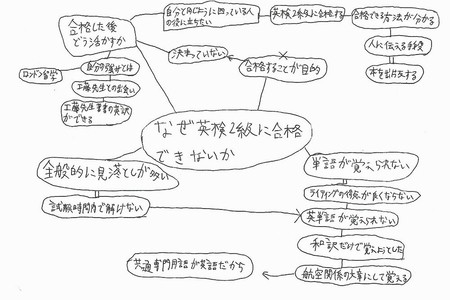 合格した後
どう活かすか
自分と同じように困っている人
の役に立ちたい
英検2級に合格する
合格できる方法が分かる
人に伝える手段
本を出版する
決まっていない
合格することが目的
ロンドン留学
自分の強みとは
工藤先生との出会い
工藤先生著書の英訳
ができる
なぜ英検2級に合格
できないか
全般的に見落としが多い
試験時間内で解けない
単語が覚えられない
ライティングの得点が良くならない
英単語が覚えられない
和訳だけで覚えようとした
航空関係の文章にして覚える
共通専門用語が英語だから